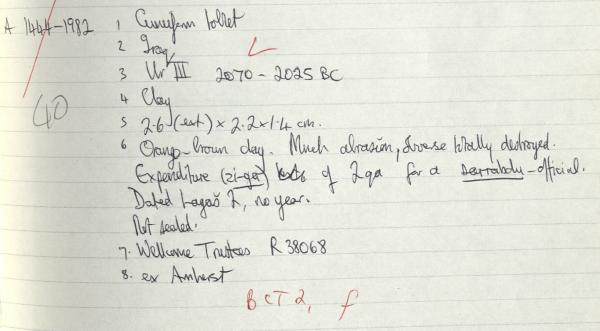 A 1444-1982 1 Cuneiform tablet
2 Iraq
3 Ur III 2070-2025 BC
4 Clay
5 2.6 (ext) × 2.2 × 1.4 cm.
6 Orange-brown clay. Much abrasion, reverse totally destroyed.
Expenditure (zi-ga) of 2 qa for a -official.
Dated Lagaš 2, no year.
Not sealed.
7. Wellcome Trustees R 38068
8. ex Amherst
40
BCT 2, f